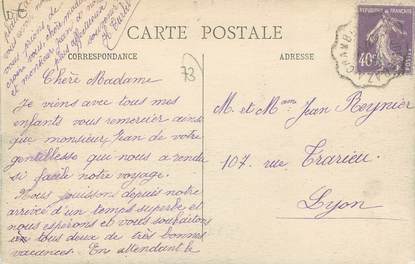 CARTE POSTALE
CORRESPONDANCE
ADRESSE
73
REPUBLIQUE FRANÇAISE
40c
POSTES
Chère Madame
Je viens avec tous mes
enfants vous remercier ainsi
que monsieur Jean de votre
gentillesse qui nous a rendu
si facile notre voyage.
Nous jouissons depuis notre
arrivée d'un temps superbe et
nous espérons et vous souhaitons
à tous deux de très bonnes
vacances. En attendant le
vous prions de
croire vous chère madame
et monsieur Jean à nos
plus affectueux
M. et Mam Jean Reynier
107, rue Trarieu
Lyon